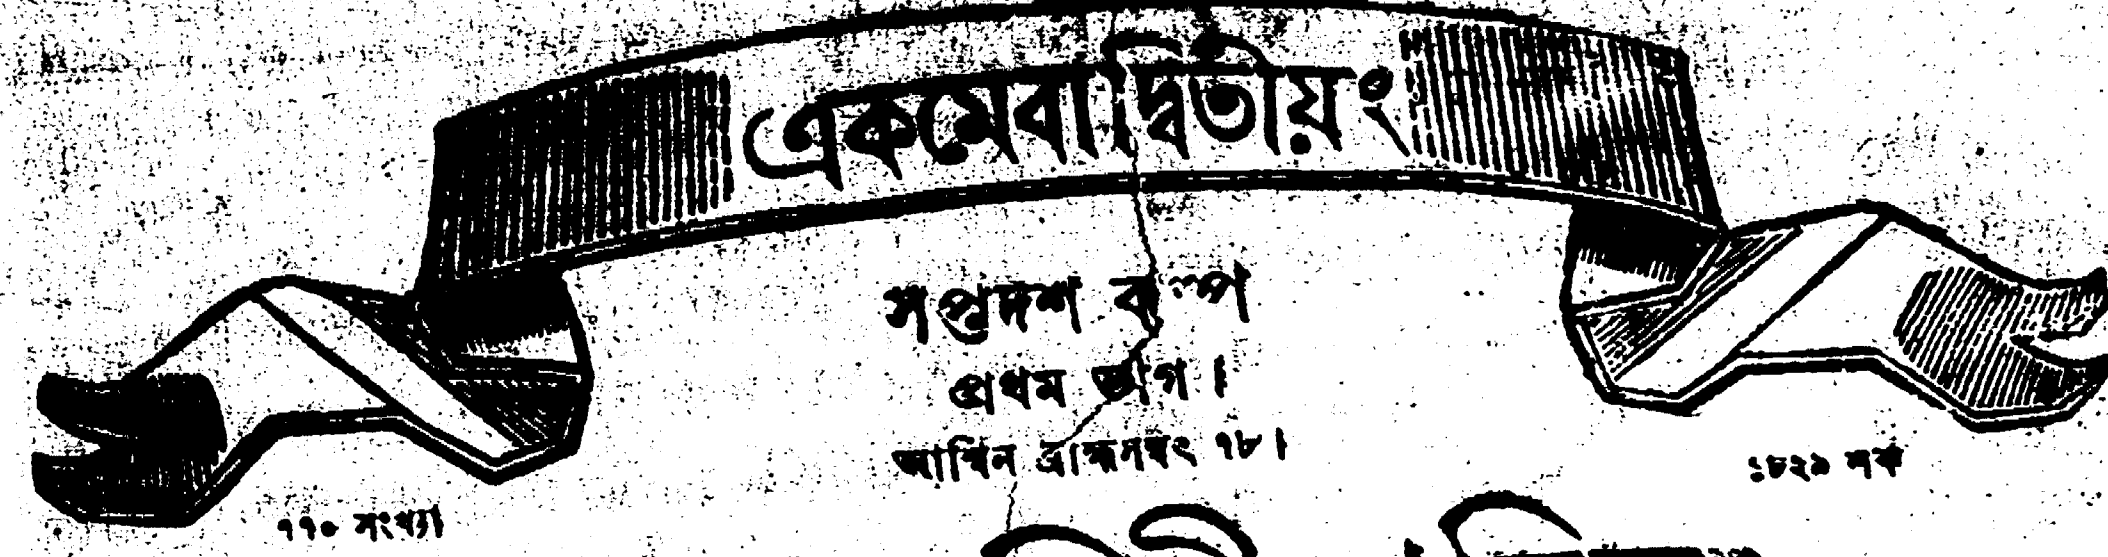 একমেবাদ্বিতীয়ং
সপ্তদশ কল্প
প্রথম ভাগ।
আশ্বিন ব্রাহ্মসম্বৎ ৭৮।
৭৭০ সংখ্যা
১৮২৯ শক